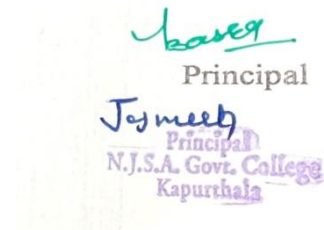 Principal
Jasmeet
Principal
N.J.S.A. Govt. College
Kapurthala